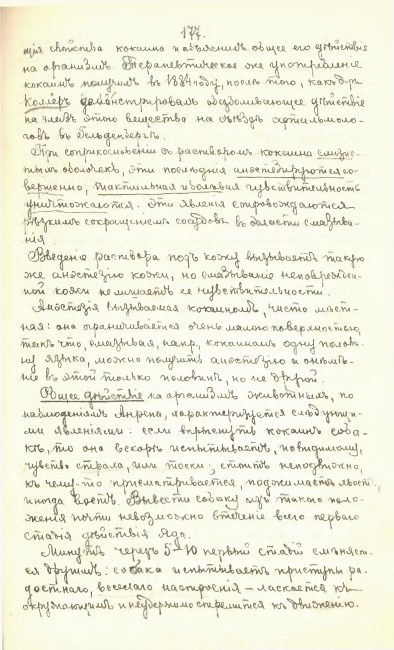 177.
щія свойства кокаина и объяснилъ общее его дѣйствіе
на организмъ. Терапевтическое же употребленіе
кокаинъ получилъ въ 1884 году, послѣ того, какъ д-ръ
Коллеръ демонстрировалъ обезболивающее дѣйствіе
на глазъ этого вещества на съѣздѣ офтальмоло-
говъ въ Гельденбергѣ.
При соприкосновеніи съ растворомъ кокаина слизис-
тыхъ оболочекъ, эти послѣднія анэстезируются со-
вершенно, тактильная и болевая чувствительность
уничтожаются. Эти явленія сопровождаются
рѣзкимъ сокращеніемъ сосудовъ въ области смазыва-
нія.
Введеніе раствора подъ кожу вызываетъ такую
же анэстезію кожи, но смазываніе неповрежден-
ной кожи не лишаетъ ее чувствительности.
Анэстезія вызываемая кокаиномъ, чисто мѣст-
ная: она ограничивается очень малою поверхностью,
такъ что, смазывая, напр., кокаиномъ одну полови-
ну языка, можно получить анэстезію и онѣмѣ-
ніе въ этой только половинѣ, но не другой.
Общее дѣйствіе на организмъ животныхъ, по
наблюденіямъ Анрепа, характеризуется слѣдующи-
ми явленіями: если впрыснуть кокаинъ соба-
кѣ, то она вскорѣ испытываетъ, повидимому,
чувство страха, или тоски, стоитъ неподвижно,
къ чему-то присматривается, поджимаетъ хвостъ,
иногда воетъ. Вывести собаку изъ такого поло-
женія почти невозможно втеченіе всего перваго
стадія дѣйствія яда.
Минутъ черезъ 5-10 первый стадій смѣняет-
ся другимъ: собака испытываетъ приступы ра-
достнаго, веселаго настроенія – ласкается къ
окружающимъ и неудержимо стремится къ движенію.